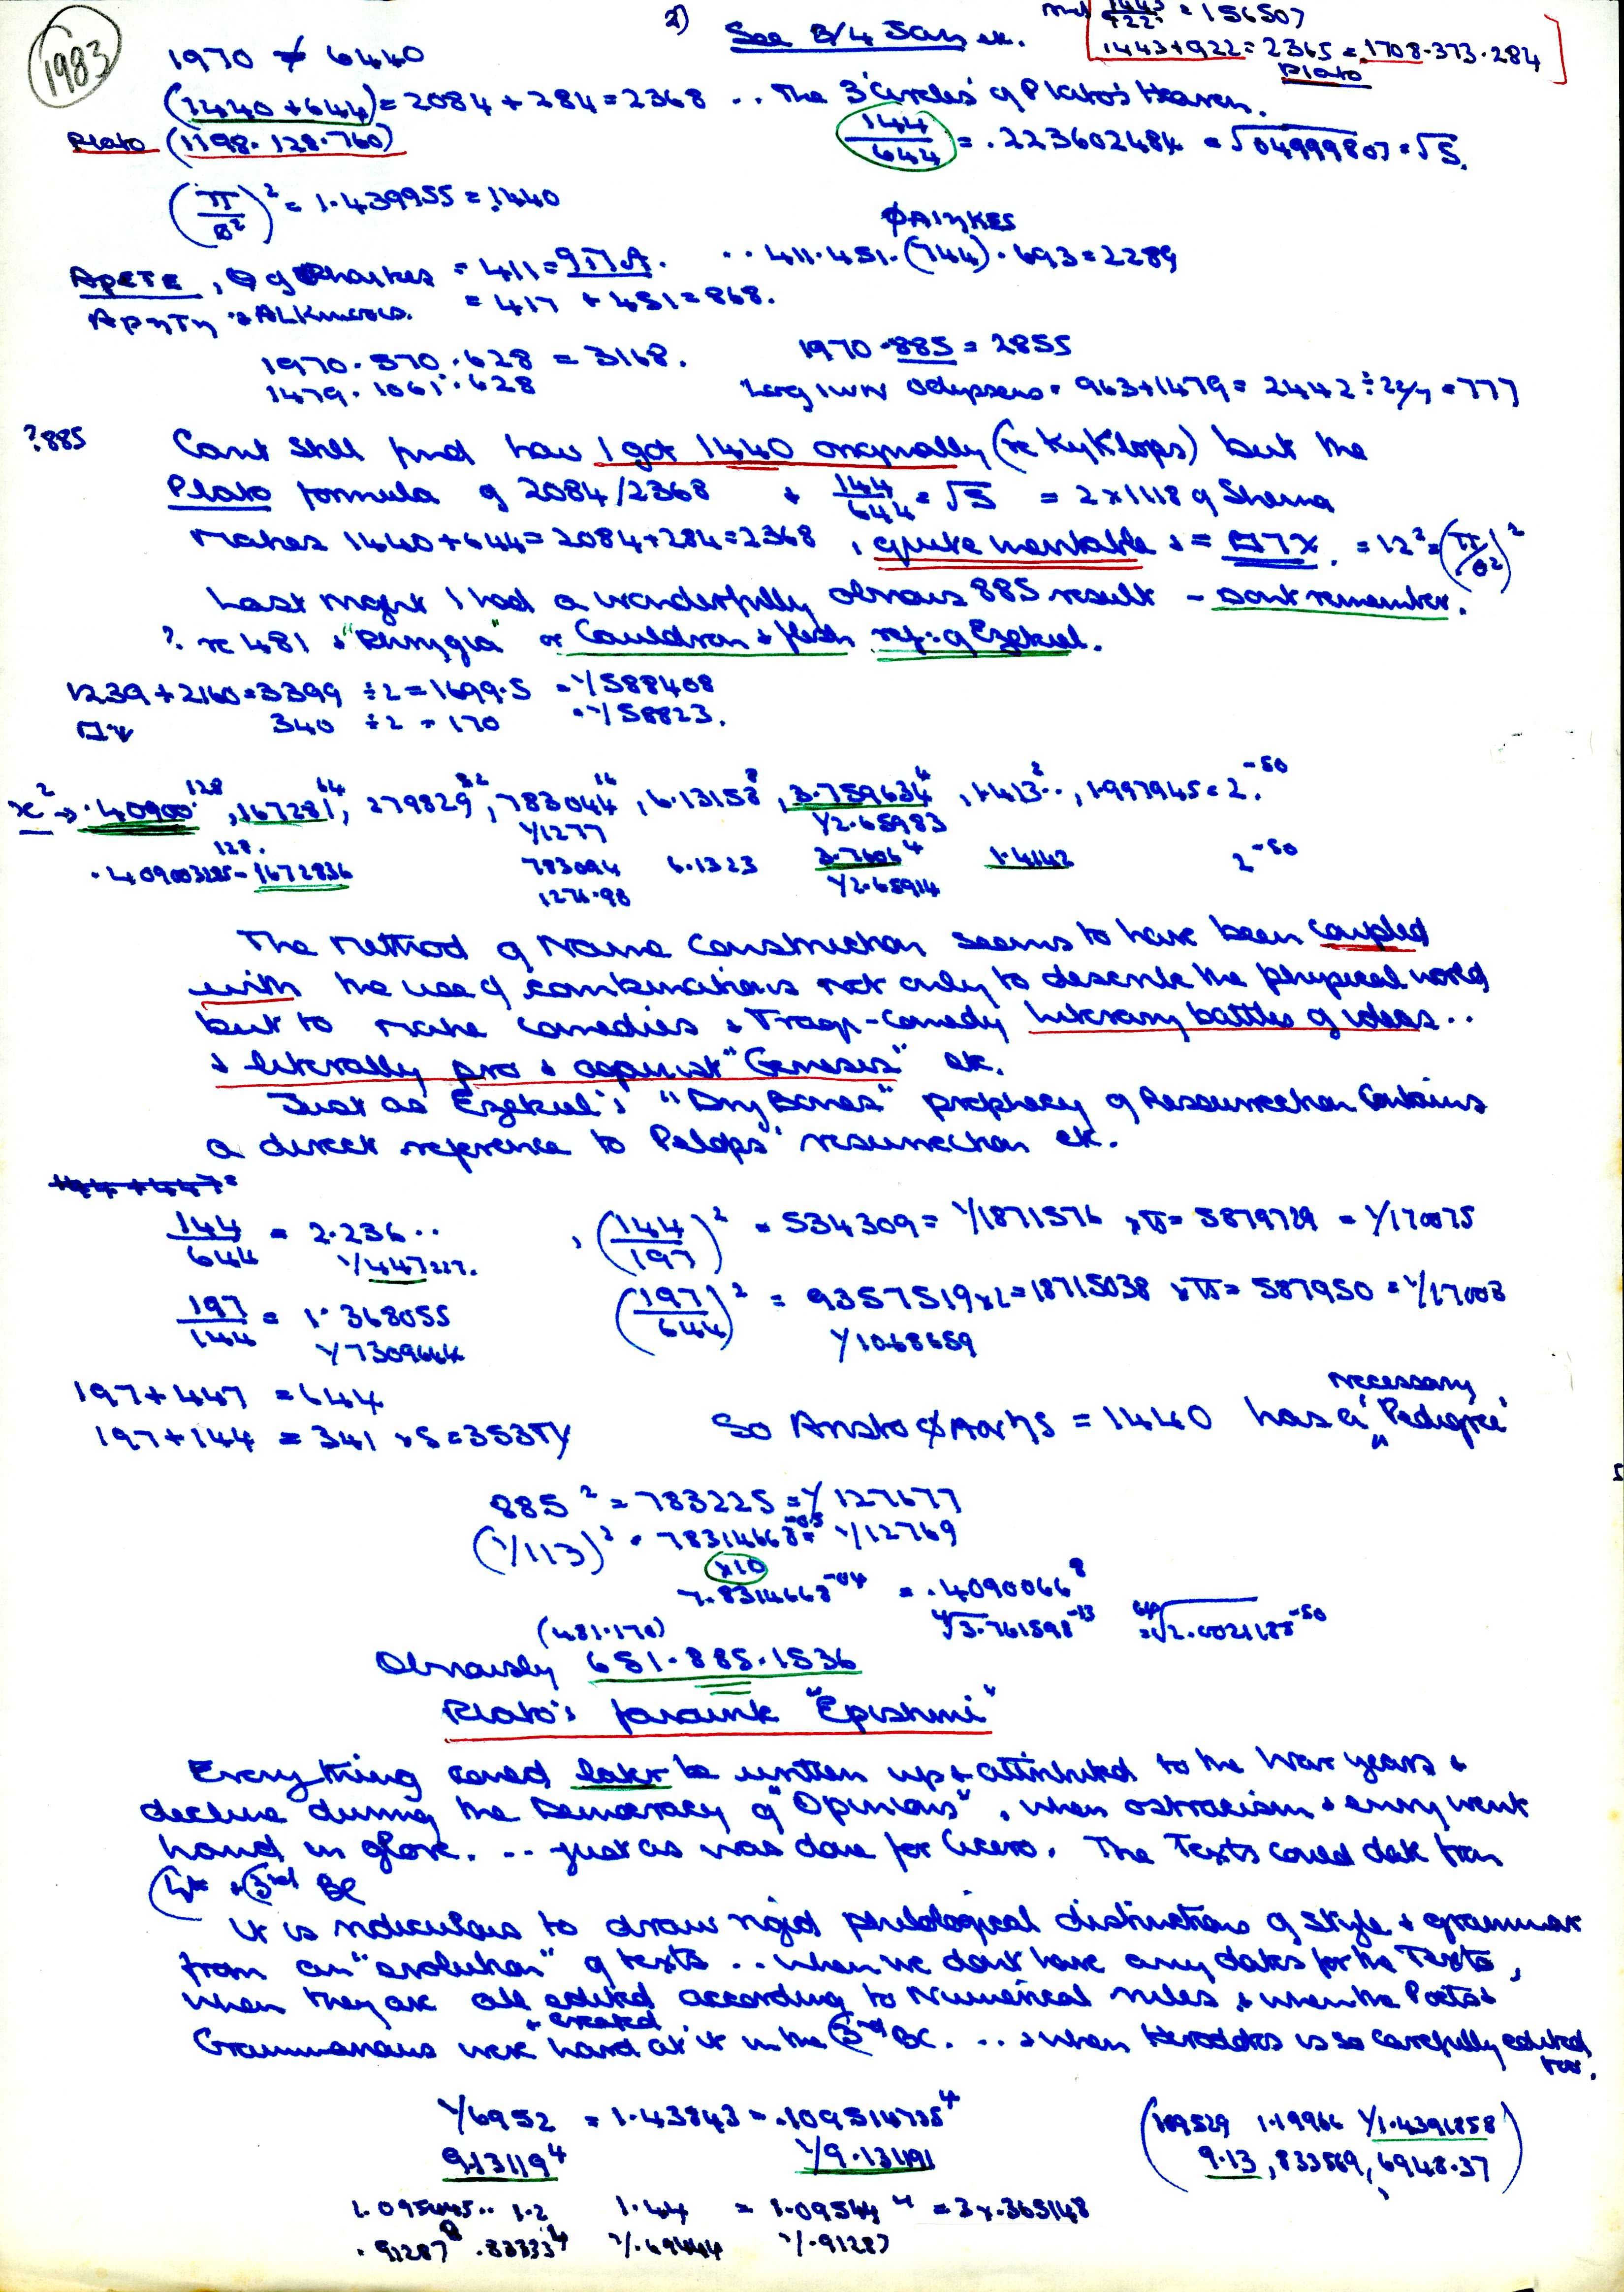 1983
2) See 3/4 Jan
= 156507
1443+922=2365=1708·373·284
Plato
1970 ≠ 6440
(1440+644)=2084+284=2368 .. The 3 'Circles' of Plato's Heaven.
Plato (1198·128·760)
144/644 = .223602484 = √04999807=√5.
(π/θ²)² = 1.439955 = 1440
ΦΑΙηΚΕS
ΑρΕΤΕ, = 411 = 9πA. ·· 411·451·(744)·693=2289
ΑρηΤη + ALKinoos. = 417 + 451=868.
1970·570·628 = 3168. 1970·885 = 2855
1479·1061·628 Odysseus = 963+1479= 2442÷22/7=777
?885 Cant still find how I got 1440 originally (re Kyklops) but the
Plato formula of 2084/2368 + 144/644=√5 = 2×1118 of
makes 1440+644=2084+284=2368, quite inevitable + = = 12²=(π/θ²)²
Last night I had a wonderfully obvious 885 result – dont remember.
? re 481 + "Phrygia" or Cauldron + flesh ref. of Ezekiel.
1239+2160=3399 ÷2=1699.5 =1/588408
340 ÷2 = 170 =1/58823.
x² → .40900¹²⁸, 167281⁶⁴, 279829³², 783044¹⁶, 6.13158⁸, 3.759634⁴, 1.413..², 1.997945=2.⁻⁵⁰
1/1277 1/2.65983
.409003285 – 1672836 783094 6.1323 3.7606⁴ 1.4142 2⁻⁵⁰
1276.98 1/2.65914
The method of Name Construction seems to have been coupled
with the use of combinations not only to describe the physical world
but to make comedies + Tragi-Comedy literary battles of ideas..
+ literally pro + against "Genesis" etc.
Just as Ezekiel's "Dry Bones" prophecy of Resurrection contains
a direct reference to Pelops' resurrection etc.
144/644 = 2.236.. , (144/197)² = 534309= 1/1871576 ×π= 5879729 = 1/170075
1/447227.
197/144 = 1.368055 (197/644)² = 9357519×2=18715038 ×π= 587950 = 1/17008
1/7309644 1/1068659
197+447 = 644
197+144 = 341 So Aristoφanηs = 1440 has a necessary 'Pedigree'
885² = 783225 = 1/127677
(1/113)² = 78314668⁻⁰⁵= 1/12769
×10
7.8314668⁻⁰⁴ = .4090066⁸
⁴√3.761598⁻¹³ =⁶⁴√2.0021185⁻⁵⁰
(481·170)
Obviously 651·885·1536
Plato's favourite "Epistimi"
Everything could later be written up + attributed to the War years +
decline during the Democracy of "Opinions", when ostracism + envy went
hand in glove. .. just as was done for Cicero. The Texts could date from
4th + 3rd BC
It is ridiculous to draw rigid philological distinctions of style + grammar
from an "evolution" of texts .. when we dont have any dates for the Texts,
when they are all edited + created according to Numerical rules, + when the Poets +
Grammarians were hard at it in the 3rd BC. ... + when Herodotos is so carefully edited
too.
1/6952 = 1.43843 = .109514735⁴
9.13119⁴ 1/9.131191
(109529 1.19966 1/1.4391858)
(9.13, 833569, 6948.37)
1.095445.. 1.2 1.44 = 1.09544⁴ = 3×.365148
.91287⁸ .83333⁴ 1/.69444 1/.91287